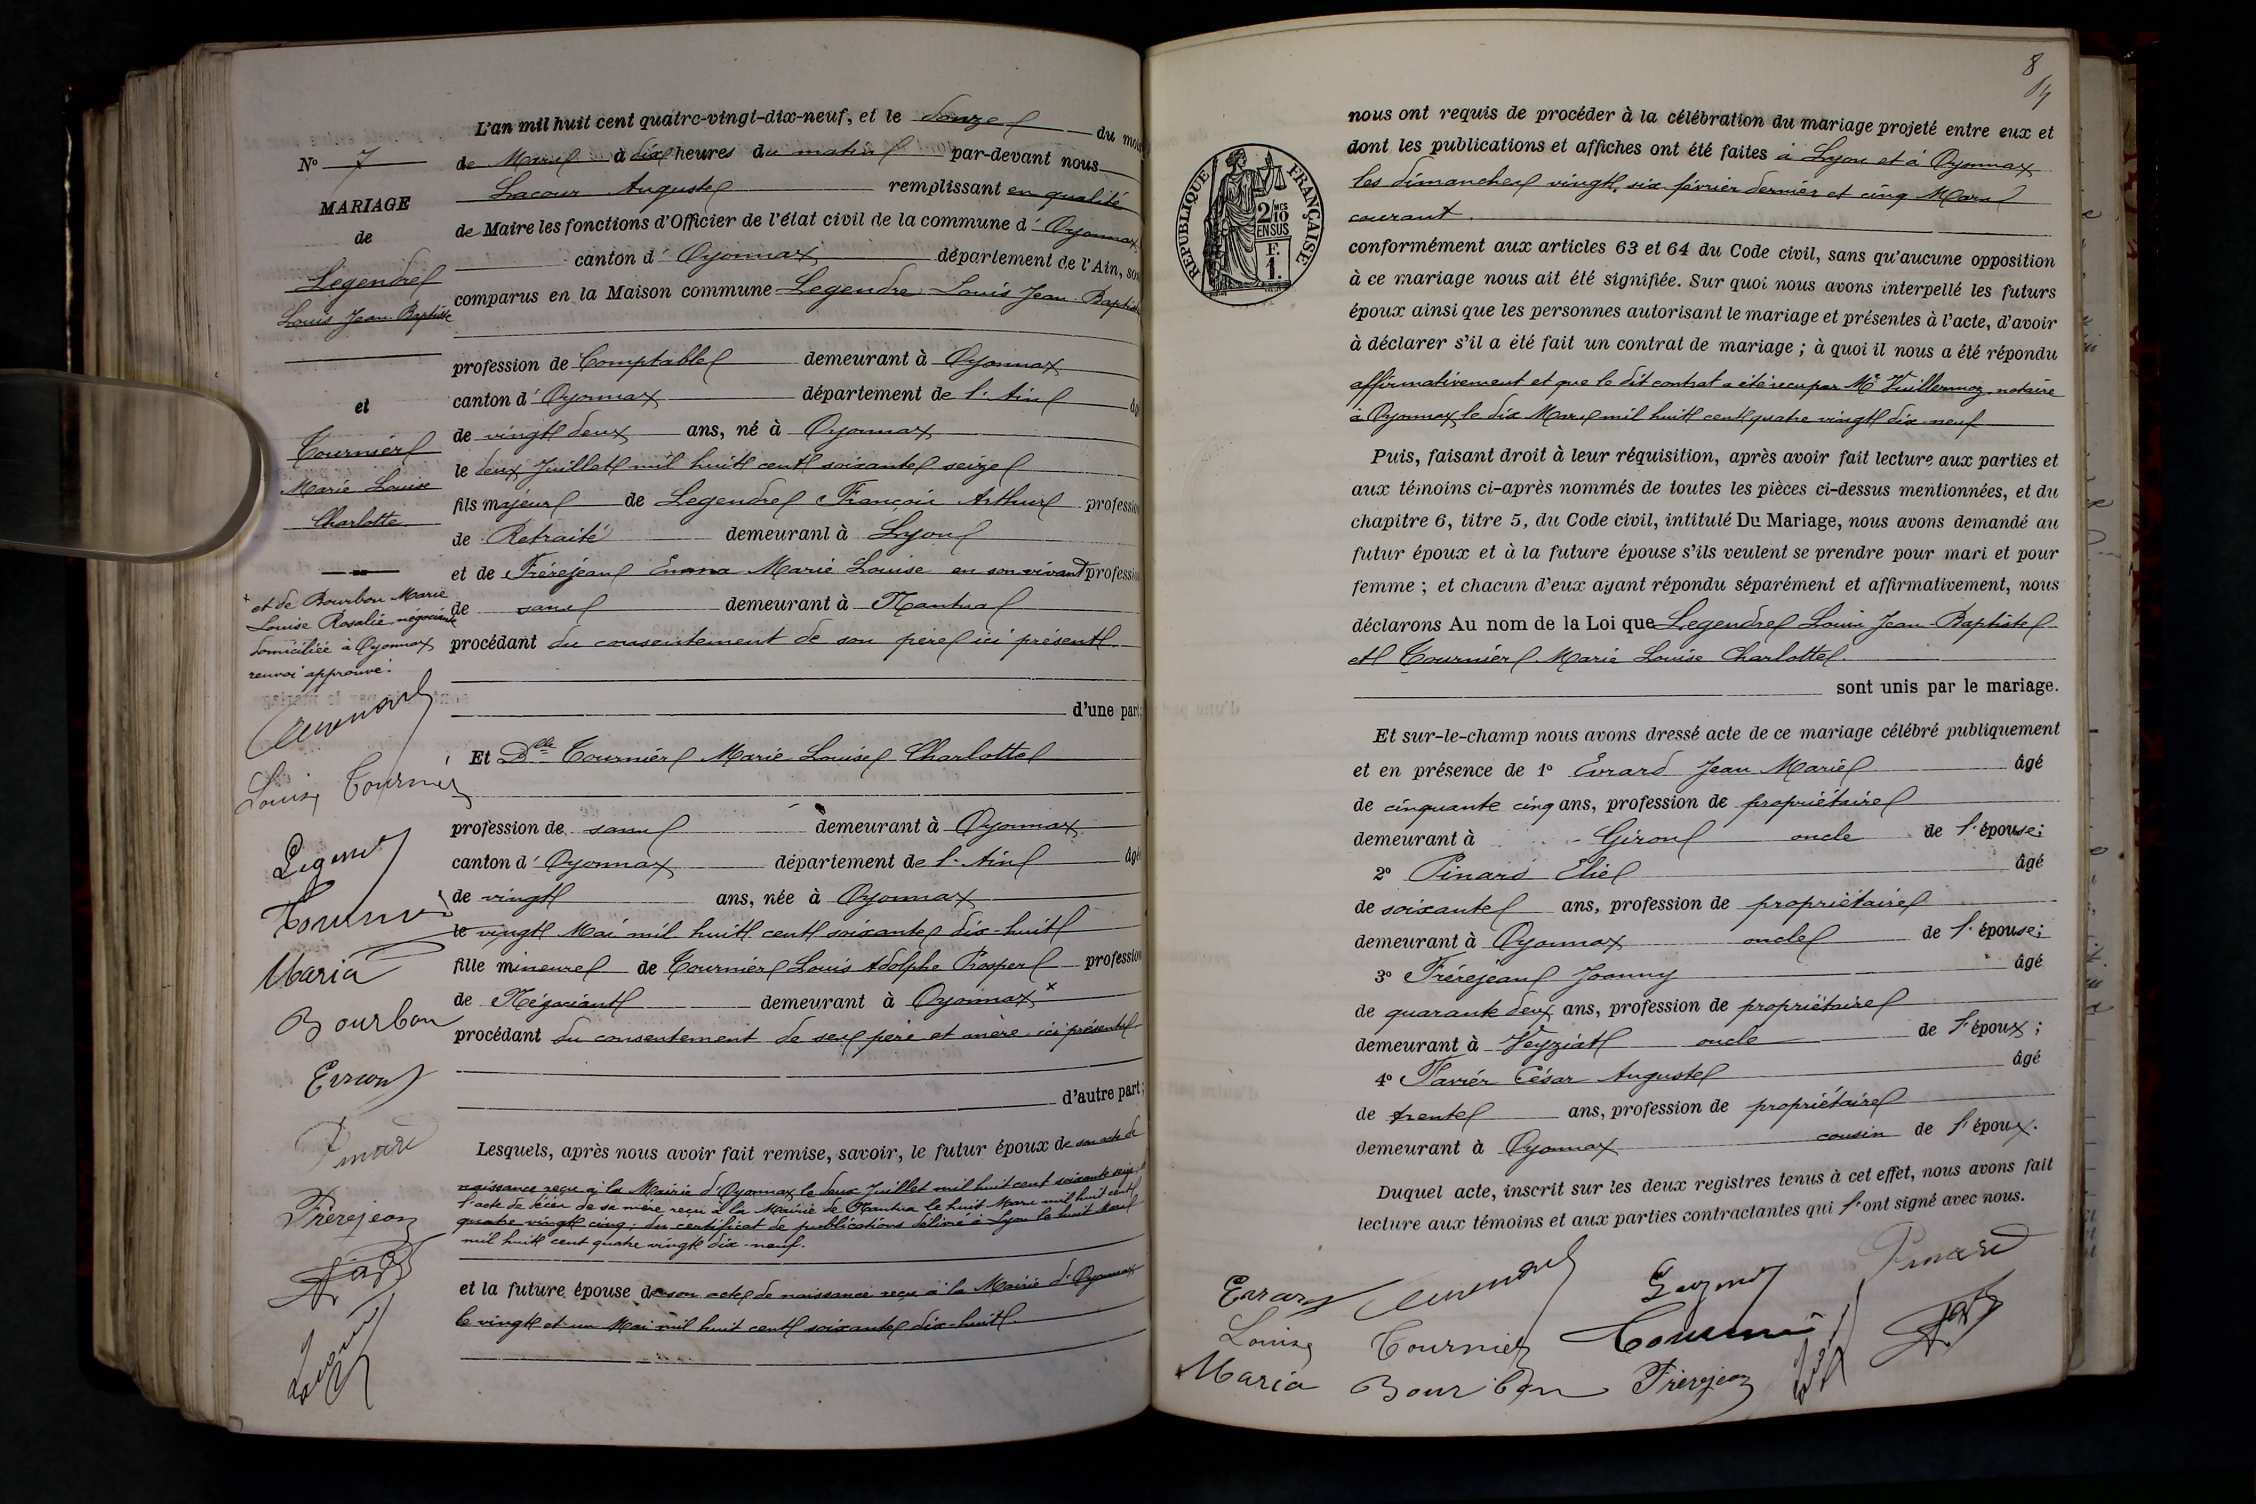 N° 7
MARIAGE
de
Legendre
Louis Jean-Baptiste
et
Tournier
Marie Louise
Charlotte
+ et de Bourbon Marie
Louise Rosalie négociante
domiciliée à Oyonnax
renvoi approuvé.
Louise Tournier
Legendre
Tournier
Maria
Bourbon
Evrard
Pinard
Frèrejean
L'an mil huit cent quatre-vingt-dix-neuf, et le douze du mois
de Mars à dix heures du matin par-devant nous
Lacour Auguste remplissant en qualité
de Maire les fonctions d'Officier de l'état civil de la commune d' Oyonnax
canton d' Oyonnax département de l'Ain, sont
comparus en la Maison commune Legendre Louis Jean-Baptiste
profession de Comptable demeurant à Oyonnax
canton d' Oyonnax département de l'Ain âgé
de vingt deux ans, né à Oyonnax
le deux Juillet mil huit cent soixante seize
fils majeur de Legendre François Arthur profession
de Retraité demeurant à Lyon
et de Frèrejean Emma Marie Louise en son vivant profession
de sans demeurant à Nantua
procédant du consentement de son père ici présent
d'une part;
Et Dlle Tournier Marie Louise Charlotte
profession de sans demeurant à Oyonnax
canton d' Oyonnax département de l'Ain âgée
de vingt ans, née à Oyonnax
le vingt Mai mil huit cent soixante dix-huit
fille mineure de Tournier Louis Adolphe Prosper profession
de Négociant demeurant à Oyonnax x
procédant du consentement de ses père et mère ici présents
d'autre part;
Lesquels, après nous avoir fait remise, savoir, le futur époux de son acte de
naissance reçu à la Mairie d'Oyonnax le deux Juillet mil huit cent soixante seize;
l'acte de décès de sa mère reçu à la Mairie de Nantua le huit Mars mil huit cent
quatre vingt cinq; du certificat de publications délivré à Lyon le huit Mars
mil huit cent quatre vingt dix-neuf.
et la future épouse de son acte de naissance reçu à la Mairie d'Oyonnax
le vingt et un Mai mil huit cent soixante dix-huit.
8
RÉPUBLIQUE FRANÇAISE
2/10
MES
EN SUS
F.
1.
nous ont requis de procéder à la célébration du mariage projeté entre eux et
dont les publications et affiches ont été faites à Lyon et à Oyonnax
les dimanches vingt six février dernier et cinq Mars
courant.
conformément aux articles 63 et 64 du Code civil, sans qu'aucune opposition
à ce mariage nous ait été signifiée. Sur quoi nous avons interpellé les futurs
époux ainsi que les personnes autorisant le mariage et présentes à l'acte, d'avoir
à déclarer s'il a été fait un contrat de mariage; à quoi il nous a été répondu
affirmativement et que le dit contrat a été reçu par Me Vuillermoz notaire
à Oyonnax le dix Mars mil huit cent quatre vingt dix-neuf
Puis, faisant droit à leur réquisition, après avoir fait lecture aux parties et
aux témoins ci-après nommés de toutes les pièces ci-dessus mentionnées, et du
chapitre 6, titre 5, du Code civil, intitulé Du Mariage, nous avons demandé au
futur époux et à la future épouse s'ils veulent se prendre pour mari et pour
femme; et chacun d'eux ayant répondu séparément et affirmativement, nous
déclarons Au nom de la Loi que Legendre Louis Jean-Baptiste
et Tournier Marie Louise Charlotte.
sont unis par le mariage.
Et sur-le-champ nous avons dressé acte de ce mariage célébré publiquement
et en présence de 1° Evrard Jean Marie âgé
de cinquante cinq ans, profession de propriétaire
demeurant à Giron oncle de l'épouse;
2° Pinard Elie âgé
de soixante ans, profession de propriétaire
demeurant à Oyonnax oncle de l'épouse;
3° Frèrejean Joanny âgé
de quarante deux ans, profession de propriétaire
demeurant à Veyziat oncle de l'époux;
4° Favier César Auguste âgé
de trente ans, profession de propriétaire
demeurant à Oyonnax cousin de l'époux.
Duquel acte, inscrit sur les deux registres tenus à cet effet, nous avons fait
lecture aux témoins et aux parties contractantes qui l'ont signé avec nous.
Evrard Legendre Pinard
Louise Tournier Tournier
Maria Bourbon Frèrejean